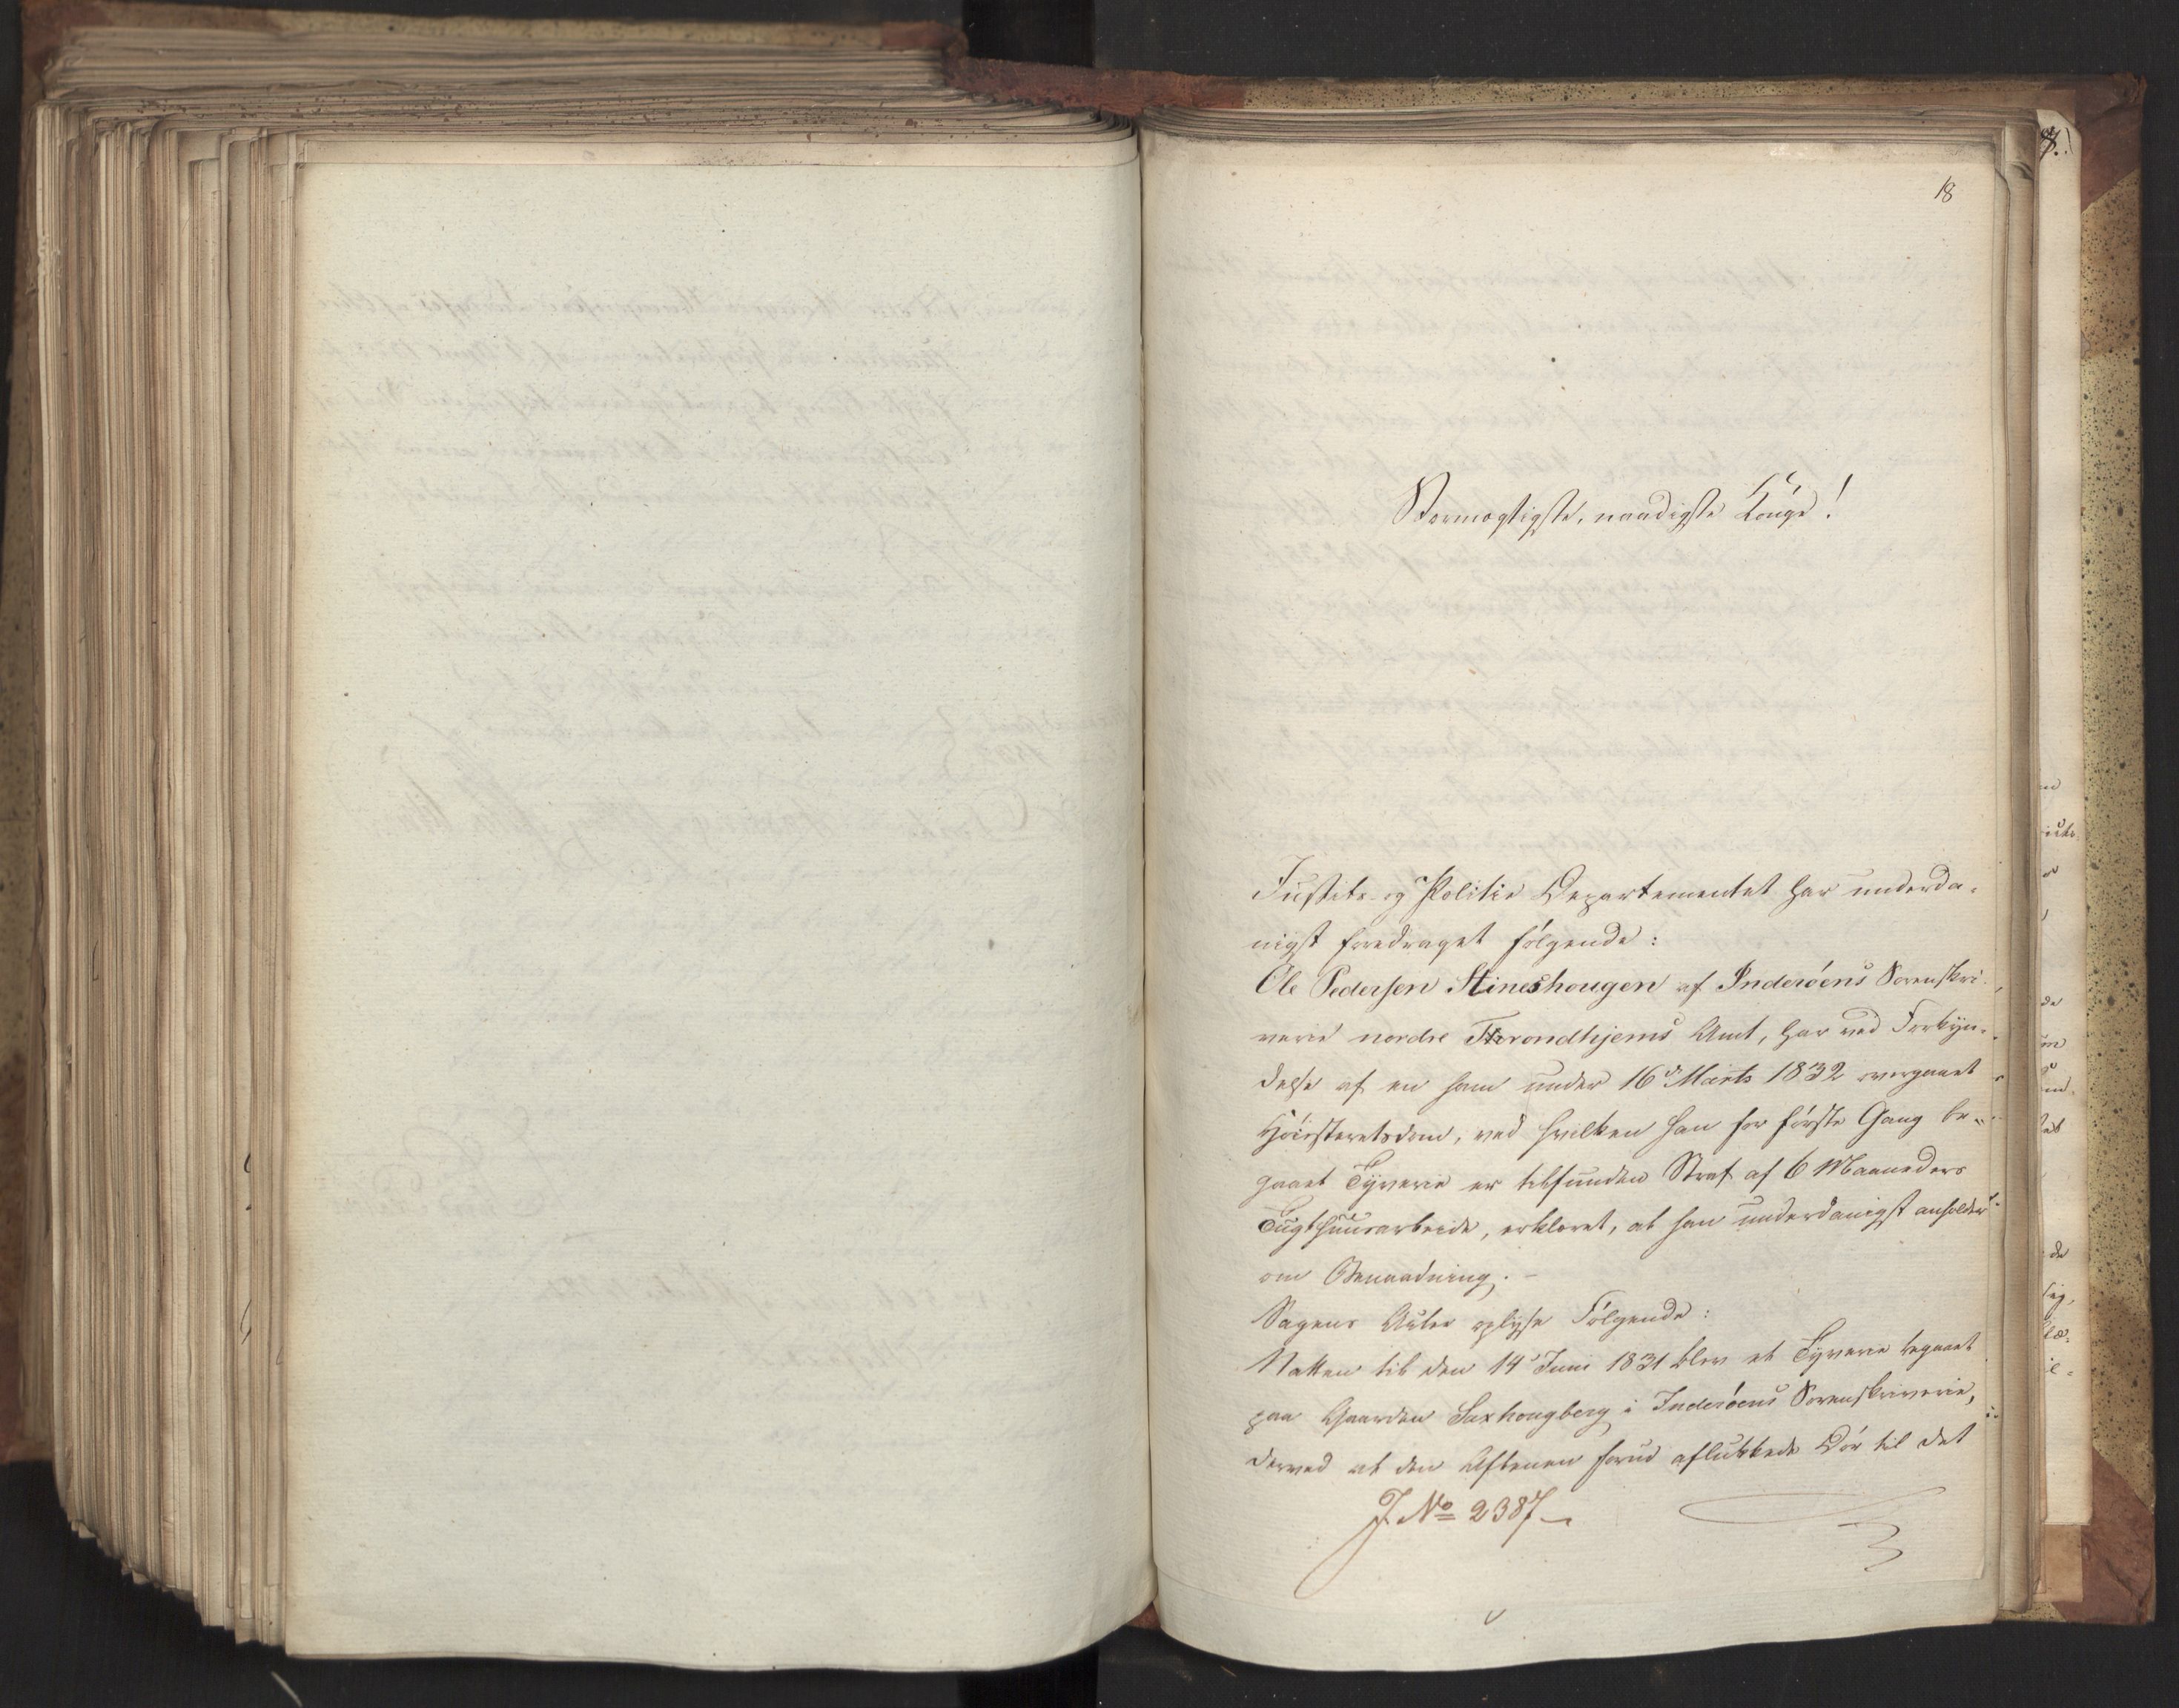 18
Stormægtigste, naadigste Konge!
Justits- og Politie Departementet har underda-
nigst foredraget følgende:
Ole Pedersen Stineshougen af Inderøens Sorenskri-
verie nordre Throndhjems Amt, har ved Forkyn-
delse af en ham under 16de Marts 1832 overgaaet
Høiesteretsdom, ved hvilken han for første Gang be-
gaaet Tyverie er tilfunden Straf af 6 Maaneders
Tugthuusarbeide, erklæret, at han underdanigst anholder
om Benaadning. -
Sagens Acter oplyse Følgende:
Natten til den 14de Juni 1831 blev et Tyverie begaaet
paa Gaarden Saxhougberg i Inderøens Sorenskriverie,
derved at den Aftenen forud aflukkede Dør til det
J. No 2387